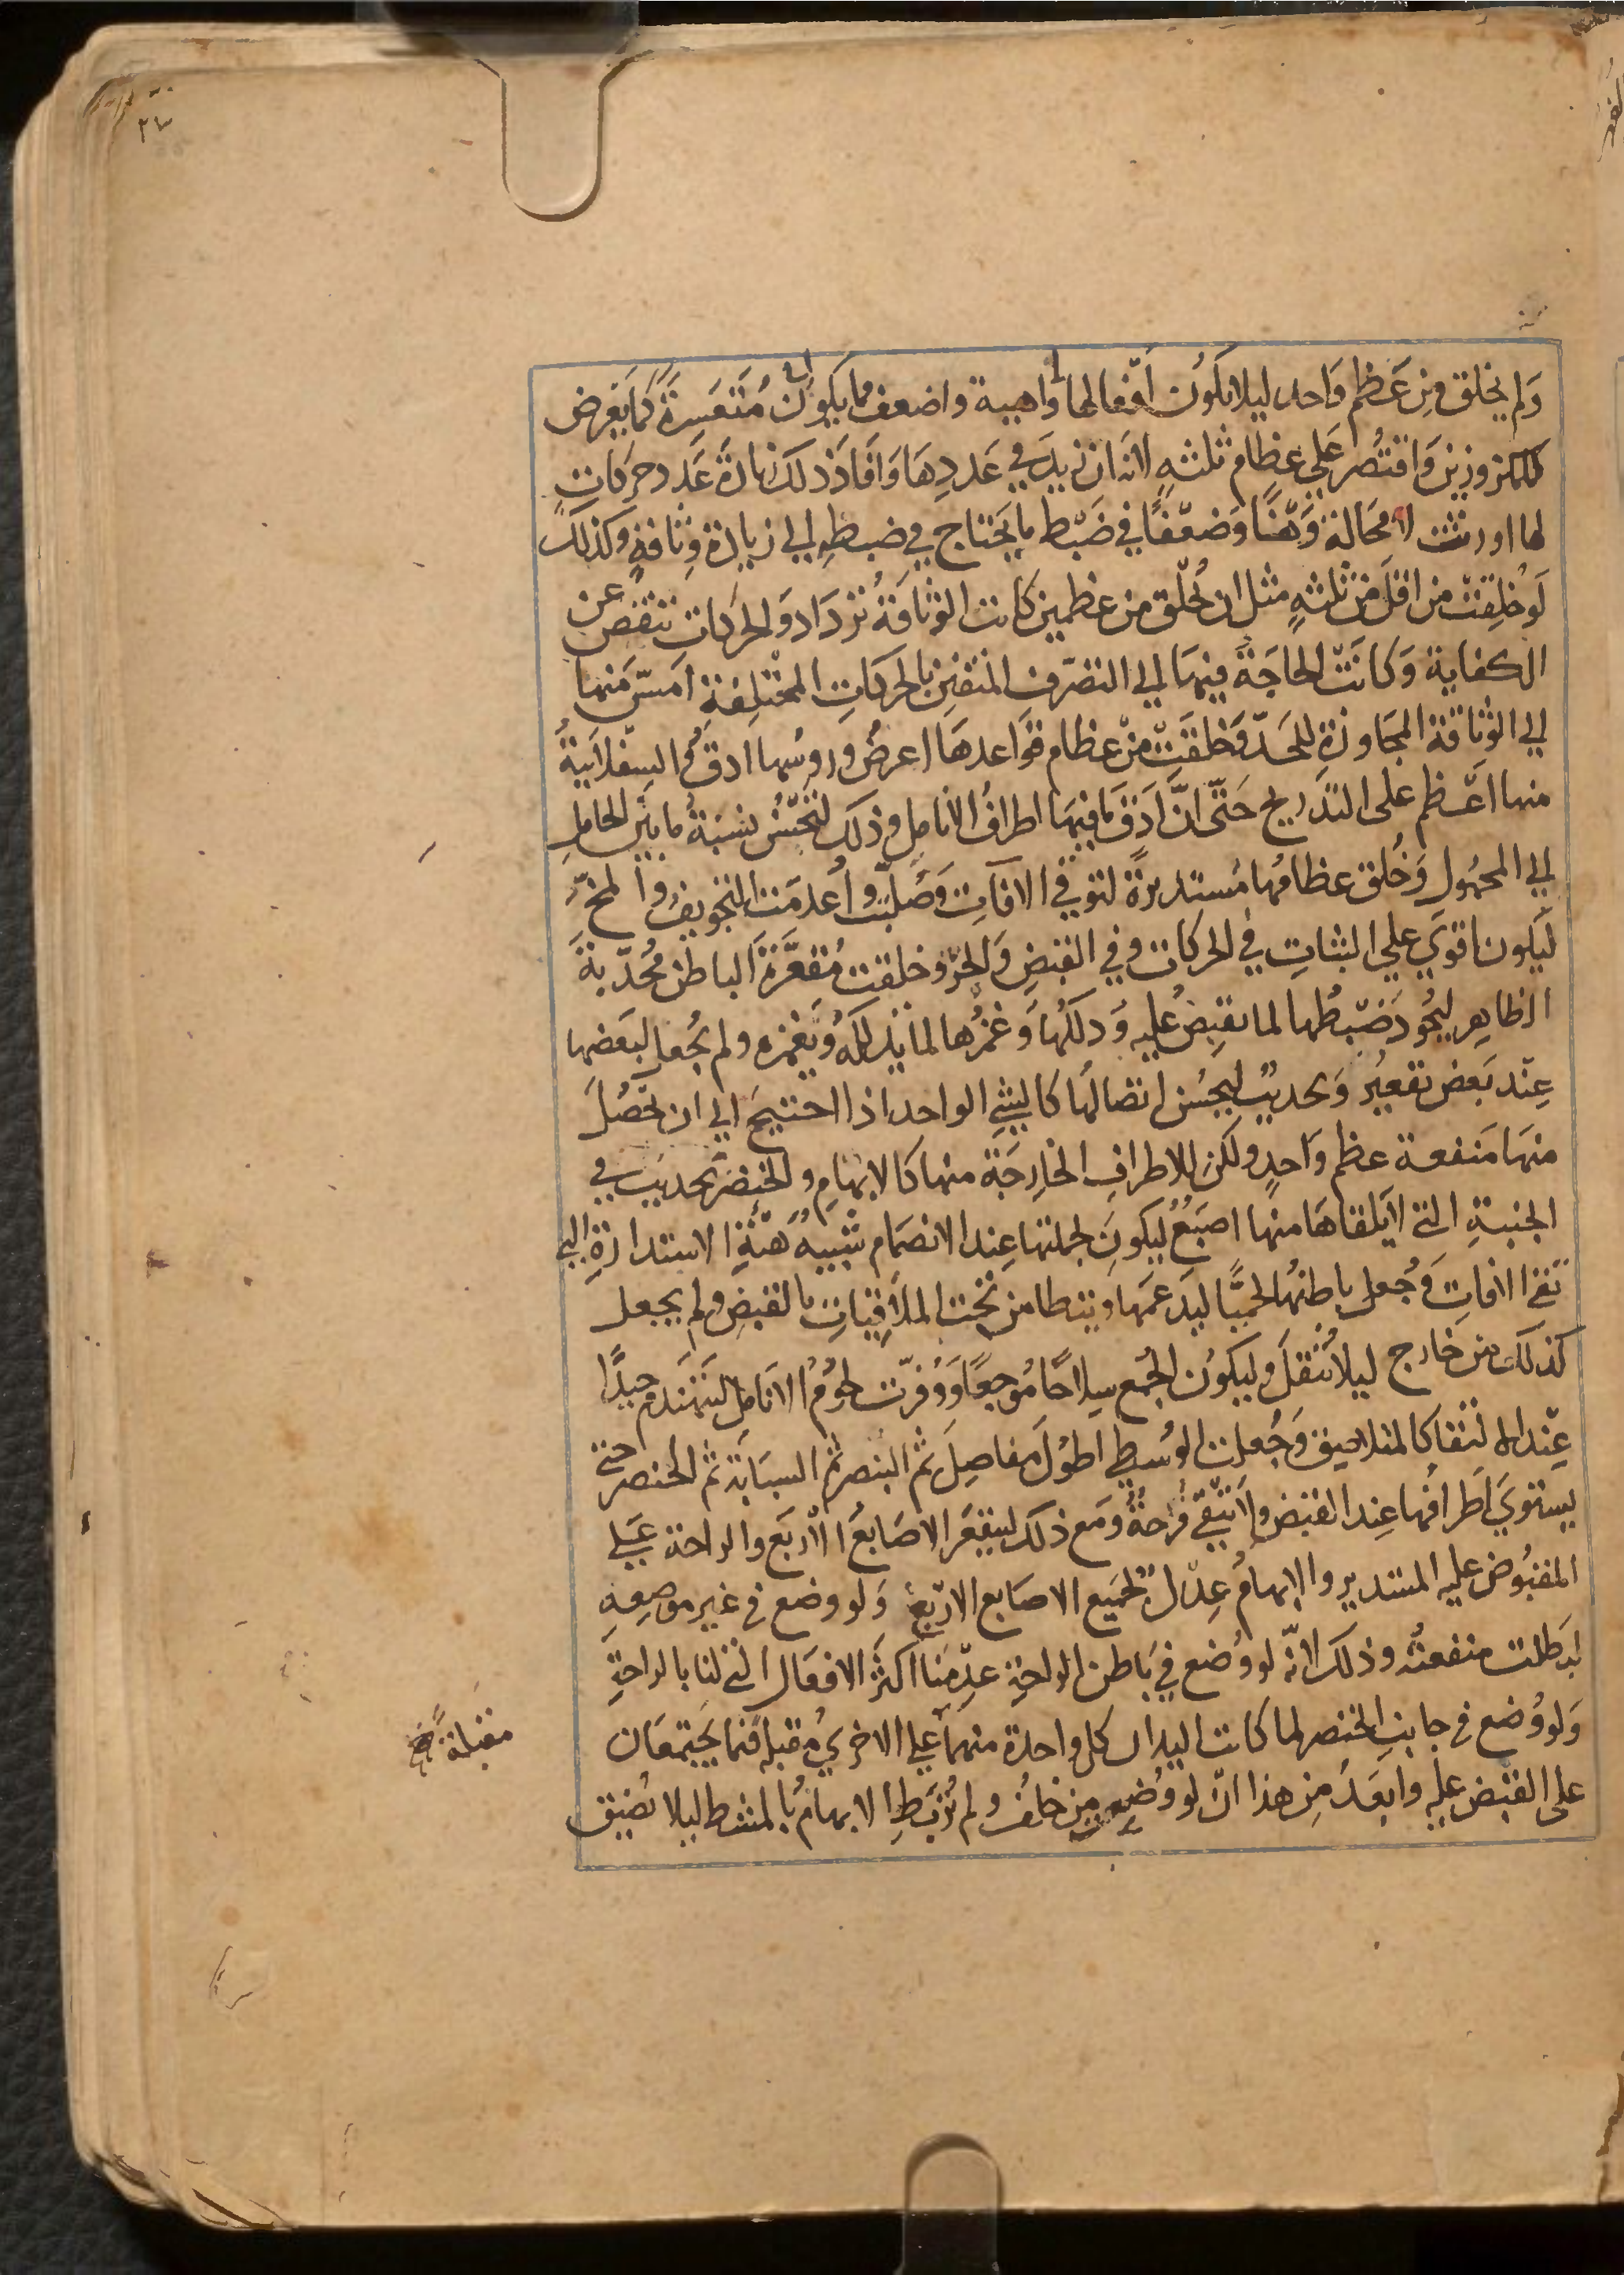 ٢٧
وَلم يخلق مِن عَظم وَاحد ليلا يكون أفعالها واهية واضعف مما يكون مُتعَسِرَةً كمَا يَعرض
للمكزوزين وَاقتُصر عَلى عظام ثلثهٍ لانه ان زيدَ في عَددِهَا وَافَادَ ذلك زيادةَ عَدد حركاتٍ
لها اورثت لا محَالة وَهْنًا وَضعْفًا في ضَبْط ما يَحتاج في ضبطِه الي زيادة وِثاقةٍ وكذلك
لَوخُلِقت من اقلَ من ثلثهٍ مثل ان تُخلق من عظمين كانت الوثاقةُ تزدَاد وَالحركات تنقُص عن
الكفاية وَكانَتْ الحاجَة فيهَا الي التصَرّف المتفنن بالحركاتِ المختلِفة امَسّ مَنها
الي الوثاقة المجَاوزة للحَدّ وَخلقَتْ مِنْ عظام قوَاعدهَا اعرضُ ورووسُها ادقُ والسفلانيةُ
منها اعَظم على التدريج حَتّى انّ اَدَق مَا فيهَا اطرافُ الانامِل وذلك لتحسُن نسَبَةُ ما بيَن الحامِلِ
الي المحمُول وَخُلق عظامُها مُستديرةً لتوقي الافاتِ وَصُلبّت وأعدمَت التجويف والمخّ
ليَكون اقوَي علي الثباتِ في الحركات وفي القبضِ وَالجرّ وخلقت مُقعَّرَةَ الباطن مُحدّبةَ
الظاهِر ليجُود ضَبْطُها لما تقبِضُ عليه وَدلكُهَا وَغمزُها لما تدلكُهُ وَتغمزه ولم يُجعل لبَعضها
عِنْد بَعض تقعيرُ وَتحديبُ ليحسُن اتصالُها كالشئِ الواحد اذا احتيجَ الي ان تحصُلَ
منهَا مَنفعة عظم وَاحدٍ ولكن للاطرافِ الخارِجَة منها كالابهَامِ والخنصَر تحديبَ في
الجنبةِ التي لايَلقاهَا منها اصبَعُ ليكونَ لجملتها عِند الانضمَام شَبيهُ هَيئةِ الاستدارةِ التي
تقي الافاتِ وَجُعل باطنُها لحميًّا ليدَعمَها وَيتطامن تحت الملاقيَاتِ بالقبضِ ولم يجعل
كذلك من خارج ليلا تثقلَ وليكوُن الجُمع سِلاحًا مُوجعًا وَوُفرّت لحُومُ الانامِل لتَتهَندم جيدًا
عِنْد الالتقا كالمتلاصِق وَجُعلت الوُسطي اطوُل مفاصِلَ ثم البنصر ثم السبّابَة ثم الخنصر حتى
يستويَ اطرافُها عِند القبض ولا تبْقيَ فُرجةُ وَمَع ذلك ليتقعَر الاصَابعُ الاربَع والراحة عَلي
المقبُوض عليه المستدير والابهامُ عِدْل لجَميَع الاصَابع الاربَع وَلو وضع في غير موضِعِهِ
لبَطلت منفعتُه وذلك لانّه لو وُضع في بَاطن الراحَةِ عدِمْنَا اكثَر الافعَال التي لنا بالراحةِ
وَلو وُضع في جانبِ الخنصر لما كانت اليدان كل واحدة منهمَا علي الاخري مُقبلة فيما يجَتمعَان
على القبض عليه وابعَدُ مِن هذا ان لو وُضع مِن خلفُ ولم تُربَط الابهامُ بالمشط ليلا تضيق
مقبلة